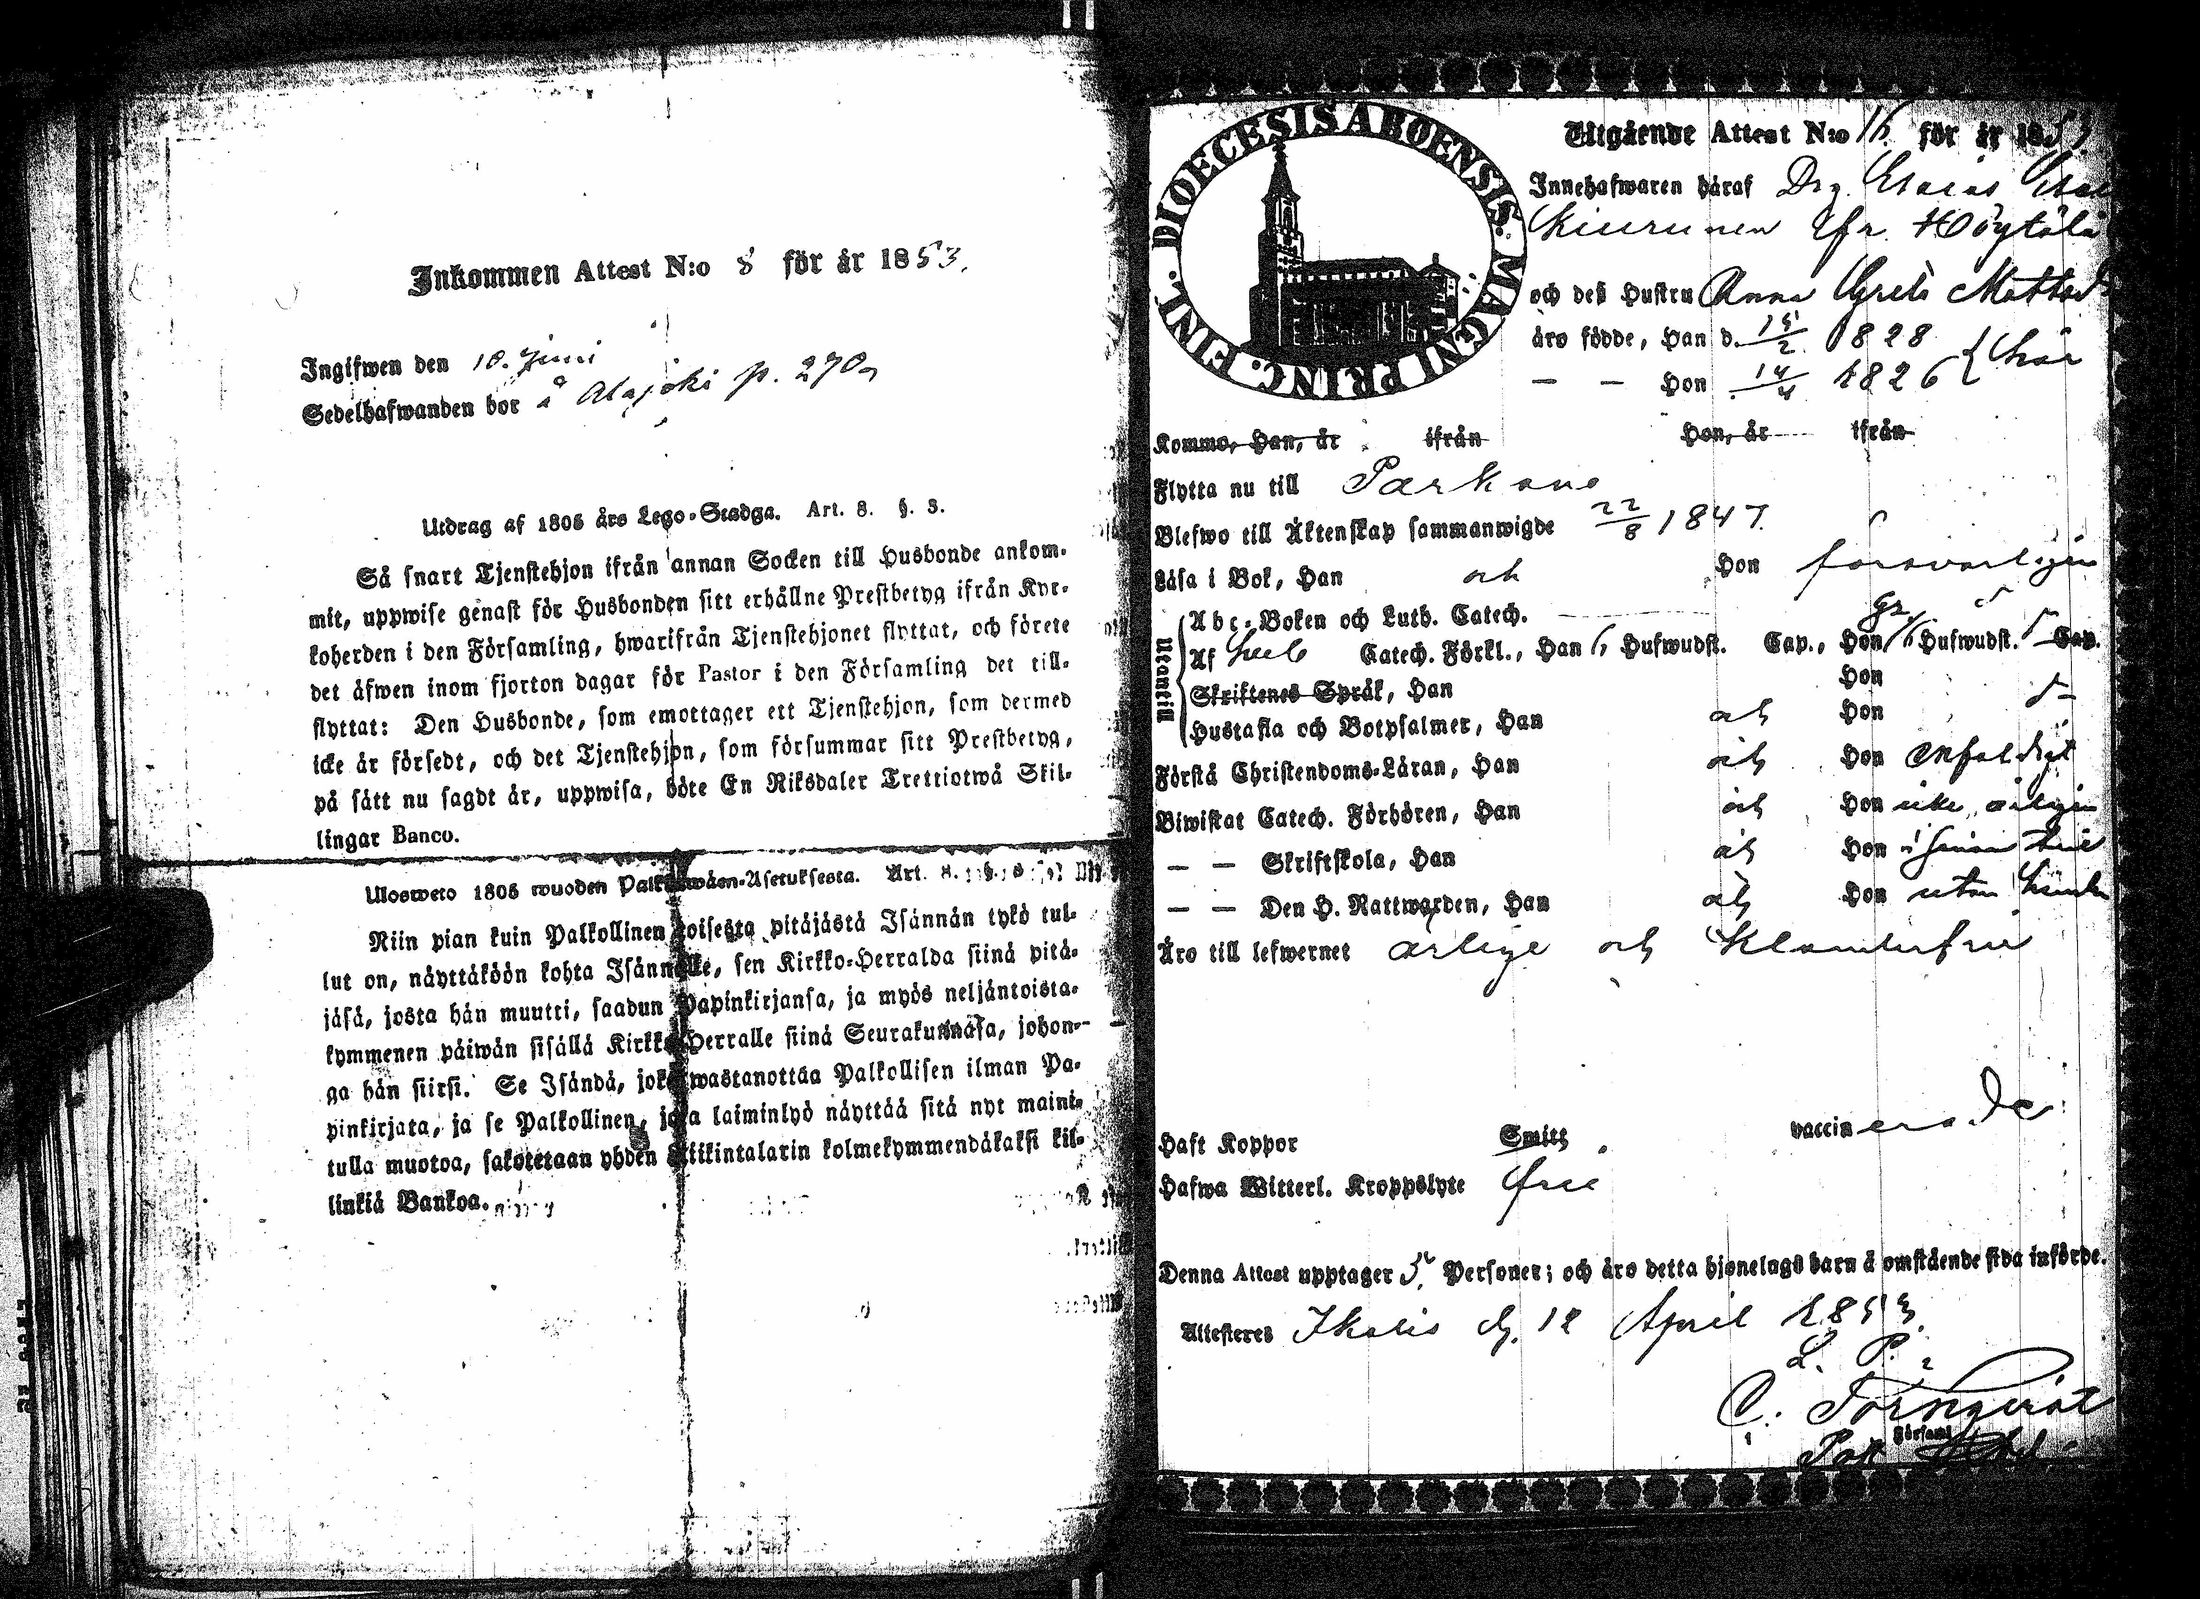 Inkommen Attest N:o 8 för år 1853.
Ingifwen den 10. Juni
Sedelhafwanden bor å Alajoki p. 270
Utdrag af 1805 års Lego-Stadga. Art. 8. §. 3.
Så snart Tjenstehjon ifrån annan Socken till Husbonde ankom-
mit, uppwise genast för Husbonden sitt erhållne Prestbetyg ifrån Kyr-
koherden i den Församling, hwarifrån Tjenstehjonet flyttat, och förete
det äfwen inom fjorton dagar för Pastor i den Församling det till-
flyttat: Den Husbonde, som emottager ett Tjenstehjon, som dermed
icke är försedt, och det Tjenstehjon, som försummar sitt Prestbetyg,
på sätt nu sagdt är, uppwisa, böte En Riksdaler Trettiotwå Skil-
lingar Banco.
Ulosweto 1805 wuoden Palkkawäen-Asetuksesta. Art. 8. §. 3
Niin pian kuin Palkollinen toisesta pitäjästä Isännän tykö tul-
lut on, näyttäköön kohta Isännälle, sen Kirkko-Herralda siinä pitä-
jäsä, josta hän muutti, saadun Papinkirjansa, ja myös neljäntoista-
kymmenen päiwän sisällä Kirkko-Herralle siinä Seurakunnasa, johon-
ga hän siirsi. Se Isändä, joka wastanottaa Palkollisen ilman Pa-
pinkirjata, ja se Palkollinen, joka laiminlyö näyttää sitä nyt maini-
tulla muotoa, sakotetaan yhden Riikintalarin kolmekymmendäkaksi kil-
linkiä Bankoa.
DIOECESIS ABOENSIS. MAGNI PRINC. FINL.
Utgående Attest N:o 16 för år 1853.
Innehafwaren häraf Drg. Esaias
Kiurunen fr. Höytölä
och deß Hustru Anna Greta Mattsd
äro födde, Han d. 15/2 1828 här
— — Hon 14/4 1826
Kommo, Han, år ifrån Hon, år ifrån
Flytta nu till Parkano
Blefwo till Äktenskap sammanwigde 22/8 1847.
Läsa i Bok, Han och Hon förswarligen
Utantill
Abc-Boken och Luth. Catech.
Af Catech. Förkl., Han 6 Hufwudst. Cap., Hon 6 Hufwudst. Cap.
Skriftenes Språk, Han Hon
Hustafla och Botpsalmer, Han och Hon
Förstå Christendoms-Läran, Han och Hon enfaldigt
Biwistat Catech. Förhören, Han och Hon icke årligen
— — Skriftskola, Han och Hon i sinom tid
— — Den H. Nattwarden, Han och Hon utan hinder
Äro till lefwernet ärlige och Klanderfrie
Haft Koppor Smitt vaccinerade
Hafwa Witterl. Kroppslyte frie
Denna Attest upptager 5 Personer; och äro detta hjonelags barn å omstående sida införde.
Attesteres Ikalis d. 12 April 1853.
L. P.
C. Törnqvist
Församl